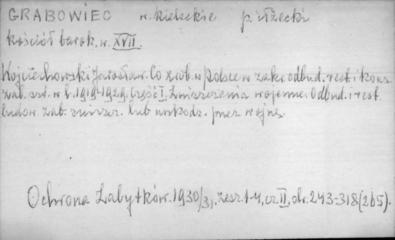 GRABOWIEC w. kieleckie p. iłżecki
kościół barok. w. XVII.
Wojciechowski Jarosław. Co zrob. w Polsce w zakr. odbud. rest. i kons.
zab. szt. w l. 1919-1929. Część I. Zniszczenia wojenne. Odbud. i rest.
budow. zab. zniszcz. lub uszkodz. przez wojnę.
Ochrona Zabytków. 1930/31, zesz. 1-4, cz. II, str. 243-318 (265).